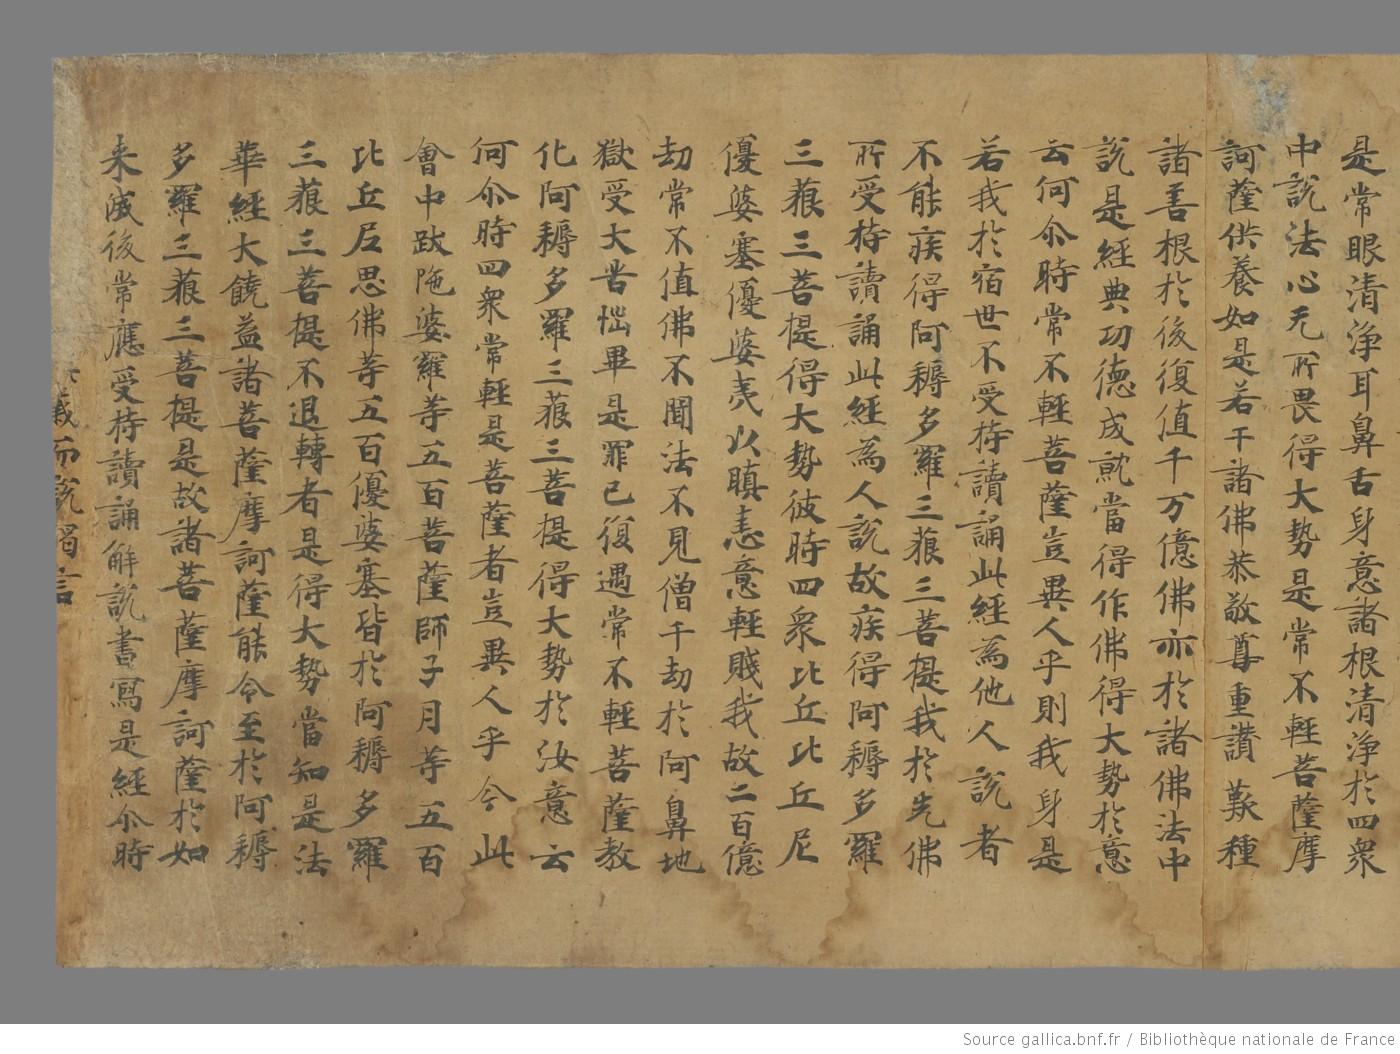 是常眼清淨耳鼻舌身意諸根清淨於四衆
中說法心无所畏得大勢是常不輕菩薩摩
訶薩供養如是若干諸佛恭敬尊重讚歎種
諸善根於後復值千万億佛亦於諸佛法中
說是經典功德成就當得作佛得大勢於意
云何尒時常不輕菩薩豈異人乎則我身是
若我於宿世不受持讀誦此經為他人說者
不能疾得阿耨多羅三藐三菩提我於先佛
所受持讀誦此經為人說故疾得阿耨多羅
三藐三菩提得大勢彼時四衆比丘比丘尼
優婆塞優婆夷以瞋恚意輕賤我故二百億
劫常不值佛不聞法不見僧千劫於阿鼻地
獄受大苦惱畢是罪已復遇常不輕菩薩教
化阿耨多羅三藐三菩提得大勢於汝意云
何尒時四衆常輕是菩薩者豈異人乎今此
會中跋陁婆羅等五百菩薩師子月等五百
比丘尼思佛等五百優婆塞皆於阿耨多羅
三藐三菩提不退轉者是得大勢當知是法
華經大饒益諸菩薩摩訶薩能令至於阿耨
多羅三藐三菩提是故諸菩薩摩訶薩於如
来滅後常應受持讀誦解說書寫是經尒時
義而說偈言
Source gallica.bnf.fr / Bibliothèque nationale de France